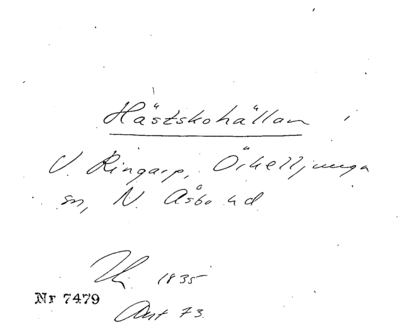 Hästskohällan
V. Ringarp, Örkelljunga
sn, N. Åsbo hd
1835
Nr 7479
Ant 73.